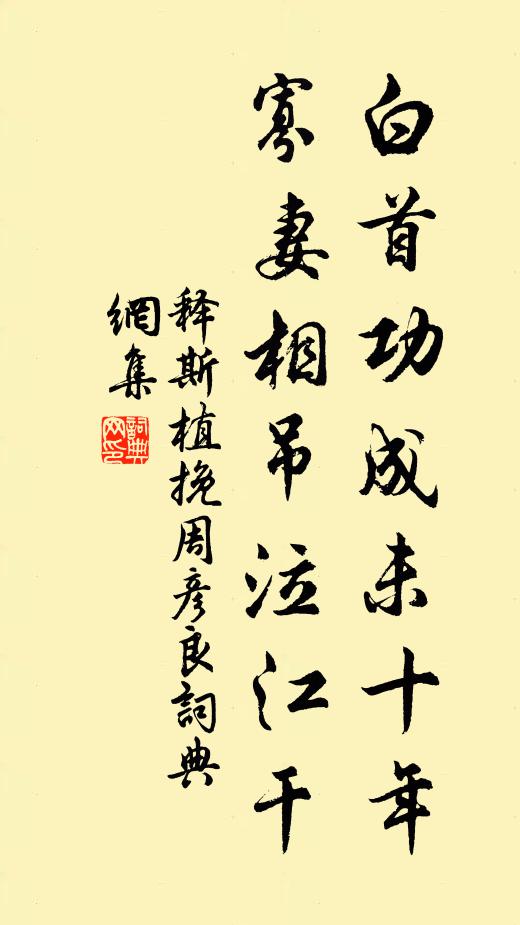 白首功成未十年
寡妻相吊泣江干
释斯植挽周彦良詞典
網集
詞典
网印